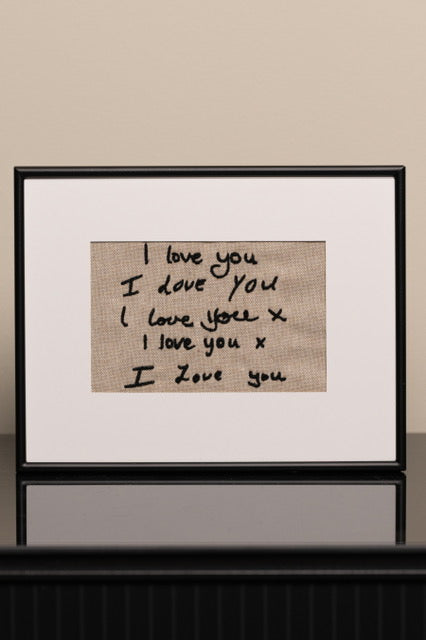 I love you
I Love You
I love you x
I love you x
I Love you